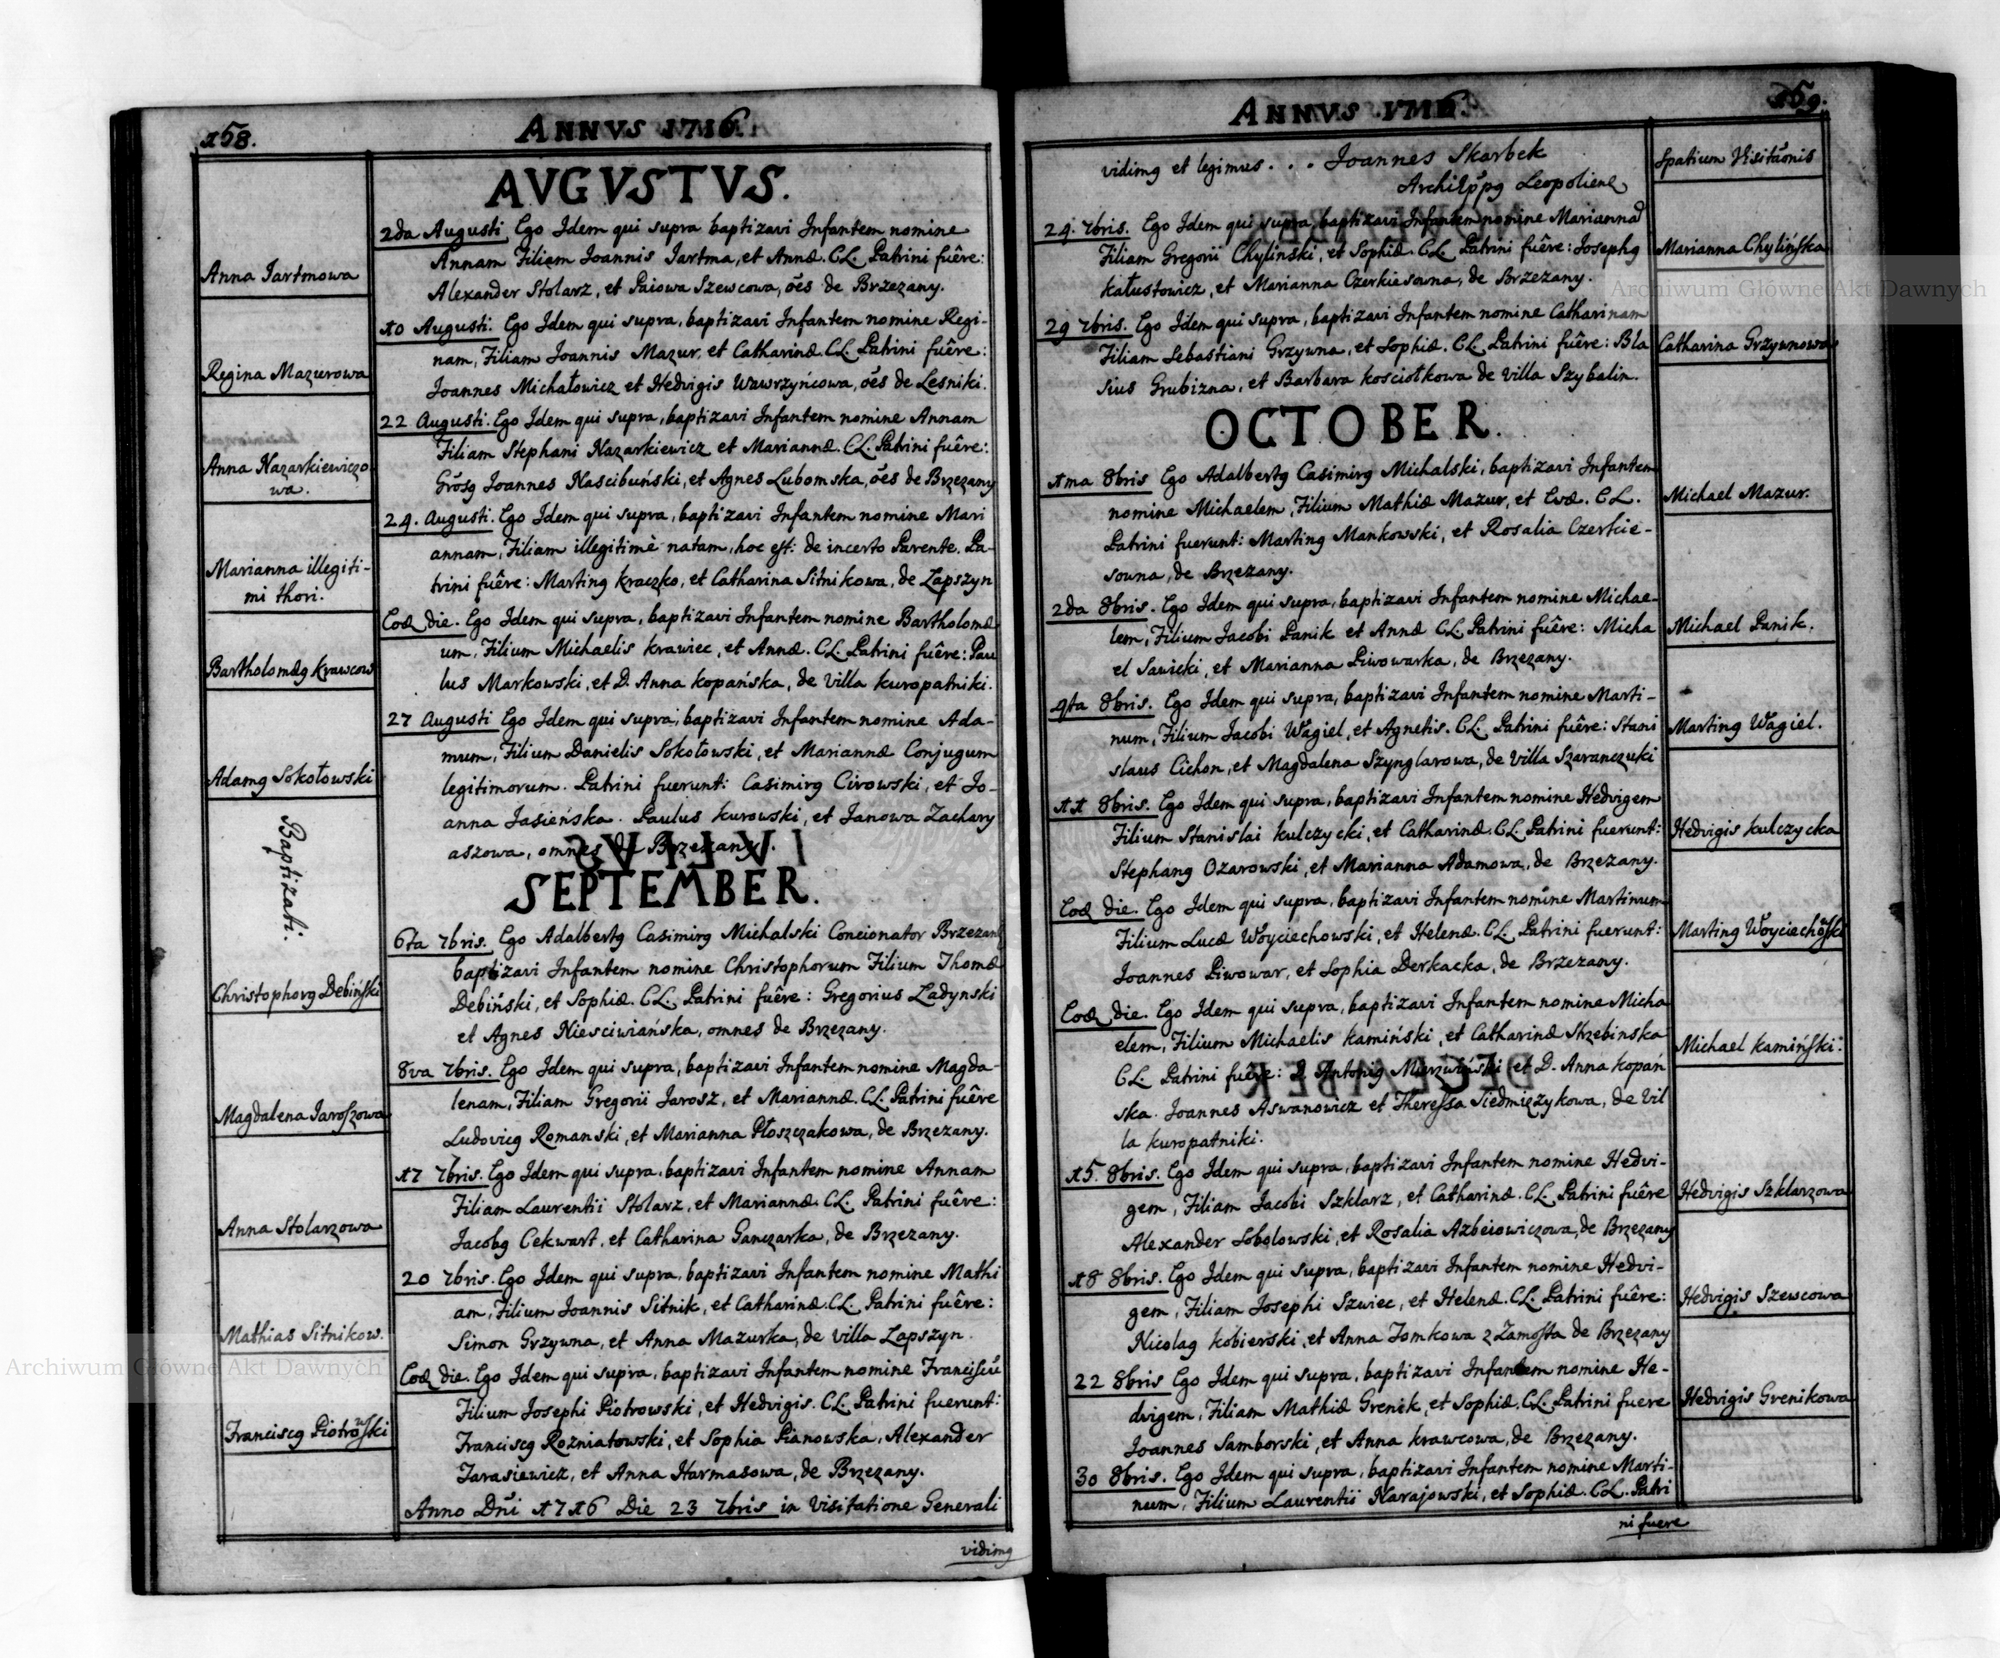 158.
ANNVS 1716.
AVGVSTVS.
2da Augusti Ego Idem qui supra baptizavi Infantem nomine
Annam Filiam Joannis Jartma, et Annæ. CL. Patrini fuêre:
Alexander Stolarz, et Paiowa Szewcowa, oẽs de Brzezany.
Anna Jartmowa
10 Augusti. Ego Idem qui supra, baptizavi Infantem nomine Regi-
nam, Filiam Joannis Mazur, et Catharinæ. CL. Patrini fuêre:
Joannes Michałowicz et Hedvigis Wawrzyńcowa, oẽs de Lesniki.
Regina Mazurowa
22 Augusti. Ego Idem qui supra, baptizavi Infantem nomine Annam
Filiam Stephani Nazarkiewicz et Mariannæ. CL. Patrini fuêre:
Joannes Nascibuński, et Agnes Lubomska, oẽs de Brzezany
Anna Nazarkiewiczo
wa.
24. Augusti. Ego Idem qui supra, baptizavi Infantem nomine Mari
annam, Filiam illegitimè natam, hoc est: de incerto Parente. Pa-
trini fuêre: Marting Kraczko, et Catharina Sitnikowa, de Lapszyn
Marianna illegiti-
mi thori.
Eod die. Ego Idem qui supra, baptizavi Infantem nomine Bartholomæ
um, Filium Michaelis Krawiec, et Annæ. CL. Patrini fuêre: Pau
lus Markowski, et D. Anna Kopańska, de Villa Kuropatniki.
Bartholomæg Krawcow
27 Augusti Ego Idem qui supra, baptizavi Infantem nomine Ada-
mum, Filium Danielis Sokołowski, et Mariannæ Conjugum
legitimorum. Patrini fuerunt: Casimirg Cirowski, et Jo-
anna Jasieńska. Paulus Kurowski, et Janowa Zachary
aszowa, omnes de Brzezany.
Adamg Sokołowski
Baptizati.
SEPTEMBER.
6ta 7bris. Ego Adalbertg Casimirg Michalski Concionator Brzezan
baptizavi Infantem nomine Christophorum Filium Thomæ
Debiński, et Sophiæ. CL. Patrini fuêre: Gregorius Ladynski
et Agnes Niesciwiańska, omnes de Brzezany.
Christophorg Debiński
8va 7bris. Ego Idem qui supra, baptizavi Infantem nomine Magda-
lenam, Filiam Gregorii Jarosz, et Mariannæ. CL. Patrini fuêre
Ludovicg Romanski, et Marianna Płoszczakowa, de Brzezany.
Magdalena Jaroszowa
17 7bris. Ego Idem qui supra, baptizavi Infantem nomine Annam
Filiam Laurentii Stolarz, et Mariannæ. CL. Patrini fuêre:
Jacobg Cekwart, et Catharina Ganczarka, de Brzezany.
Anna Stolarzowa
20 7bris. Ego Idem qui supra, baptizavi Infantem nomine Mathi
am, Filium Joannis Sitnik, et Catharinæ. CL. Patrini fuêre:
Simon Grzywna, et Anna Mazurka, de villa Lapszyn.
Mathias Sitnikow.
Eod die. Ego Idem qui supra, baptizavi Infantem nomine Franciscũ
Filium Josephi Piotrowski, et Hedvigis. CL. Patrini fuerunt:
Franciscg Rozniatowski, et Sophia Pianowska, Alexander
Tarasiewicz, et Anna Harmasowa, de Brzezany.
Franciscg Piotrowski
Anno Dñi 1716 Die 23 7bris in Visitatione Generali
vidimg
159.
ANNVS 1716.
vidimg et legimus . . . Joannes Skarbek
Archiēppg Leopolien
Spatium Visitaõnis
24. 7bris. Ego Idem qui supra, baptizavi Infantem nomine Mariannã
Filiam Gregorii Chyliński, et Sophiæ. CL. Patrini fuêre: Josephg
Kałustowicz, et Marianna Czerkiesowna, de Brzezany.
Marianna Chylińska
29 7bris. Ego Idem qui supra, baptizavi Infantem nomine Catharinam
Filiam Sebastiani Grzywna, et Sophiæ. CL. Patrini fuêre: Bla
sius Grubizna, et Barbara Kosciołkowa de villa Szybalin.
Catharina Grzywnowa
OCTOBER.
1ma 8bris Ego Adalbertg Casimirg Michalski, baptizavi Infantem
nomine Michaelem, Filium Mathiæ Mazur, et Evæ. CL.
Patrini fuerunt: Marting Mankowski, et Rosalia Czerkie-
sowna, de Brzezany.
Michael Mazur.
2da 8bris. Ego Idem qui supra, baptizavi Infantem nomine Michae-
lem, Filium Jacobi Panik et Annæ CL. Patrini fuêre: Micha
el Sawicki, et Marianna Piwowarka, de Brzezany.
Michael Panik.
4ta 8bris. Ego Idem qui supra, baptizavi Infantem nomine Marti-
num, Filium Jacobi Wagiel, et Agnetis. CL. Patrini fuêre: Stani
slaus Cichon, et Magdalena Szynglarowa, de villa Szaranczuki
Marting Wagiel.
11 8bris. Ego Idem qui supra, baptizavi Infantem nomine Hedvigem
Filium Stanislai Kulczycki, et Catharinæ. CL. Patrini fuerunt:
Stephang Ozarowski, et Marianna Adamowa, de Brzezany.
Hedvigis Kulczycka
Eod die. Ego Idem qui supra, baptizavi Infantem nomine Martinum
Filium Lucæ Woyciechowski, et Helenæ. CL. Patrini fuerunt:
Joannes Piwowar, et Sophia Derkacka, de Brzezany.
Marting Woyciechowski
Eod die. Ego Idem qui supra, baptizavi Infantem nomine Micha
elem, Filium Michaelis Kamiński, et Catharinæ Strzebinska
CL. Patrini fuêre: D. Antonig Murzwiński et D. Anna Kopań
ska. Joannes Aswanowicz et Theressa Siedmiczykowa, de Vil
la Kuropatniki.
Michael Kamiński.
15. 8bris. Ego Idem qui supra, baptizavi Infantem nomine Hedvi-
gem, Filiam Jacobi Szklarz, et Catharinæ. CL. Patrini fuêre
Alexander Sobolowski, et Rosalia Azbeiowiczowa, de Brzezany
Hedvigis Szklarzowa
18 8bris. Ego Idem qui supra, baptizavi Infantem nomine Hedvi-
gem, Filiam Josephi Szwiec, et Helenæ. CL. Patrini fuêre:
Nicolag Kobierski, et Anna Tomkowa z Zamosta de Brzezany
Hedvigis Szewcowa
22 8bris Ego Idem qui supra, baptizavi Infantem nomine He-
dvigem, Filiam Mathiæ Grenik, et Sophiæ. CL. Patrini fuere
Joannes Samborski, et Anna Krawcowa, de Brzezany.
Hedvigis Grenikowa
30 8bris. Ego Idem qui supra, baptizavi Infantem nomine Marti-
num, Filium Laurentii Narajowski, et Sophiæ. CL. Patri
ni fuere
Archiwum Główne Akt Dawnych
Archiwum Główne Akt Dawnych